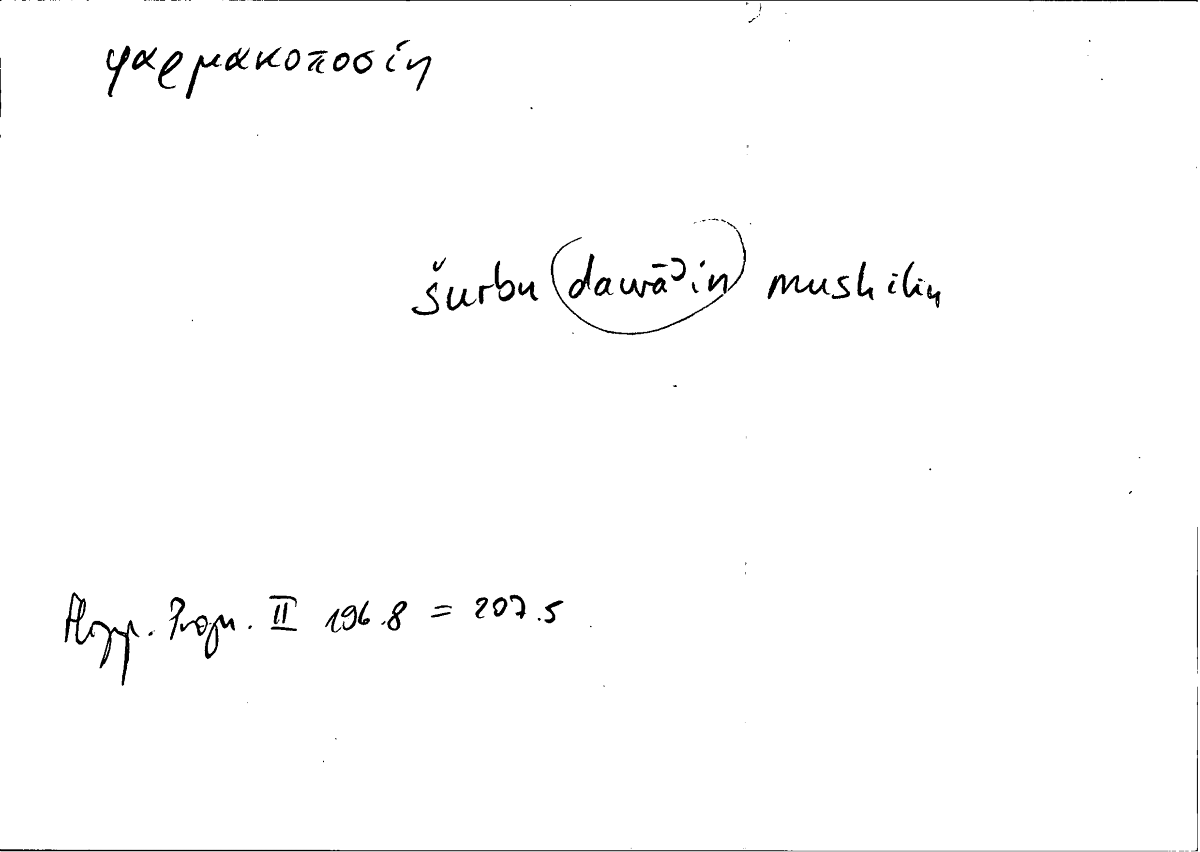 φαρμακοποσίη
šurbu dawāʾin mushilin
Hipp. Progn. II 196.8 = 207.5